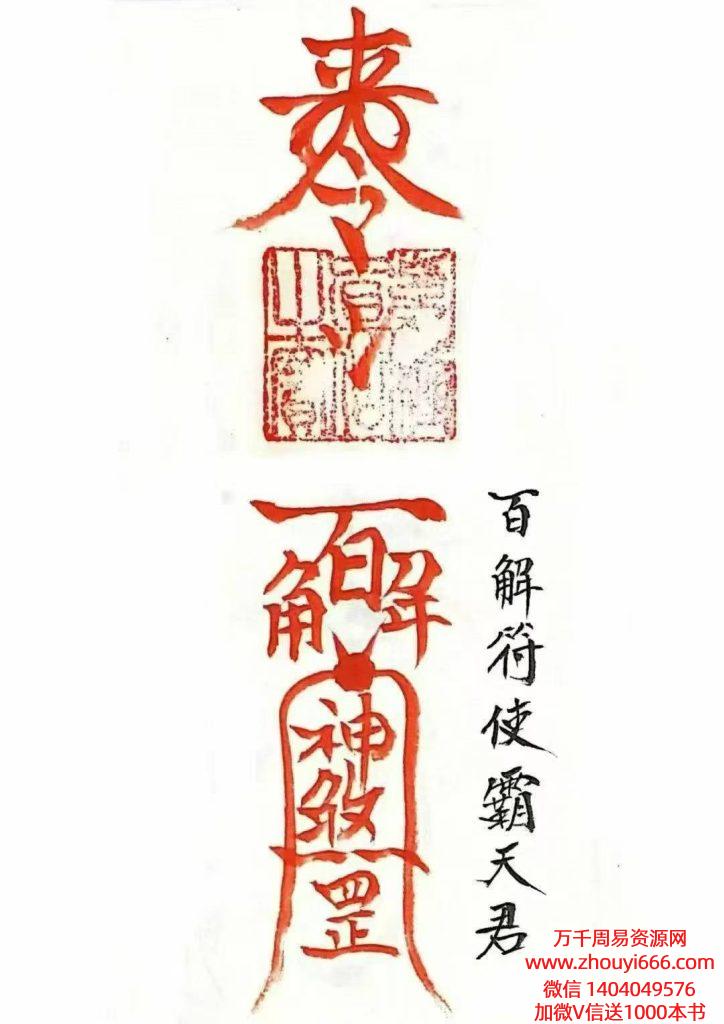 令
百解
神煞
罡
百解符使霸天君
万千周易资源网
www.zhouyi666.com
微信 1404049576
加微V信送1000本书